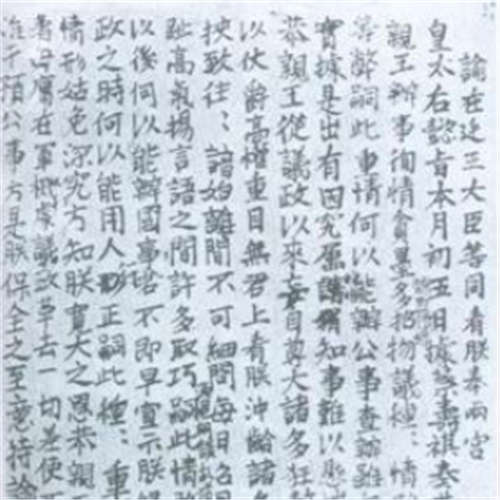 諭在廷王大臣等同看朕奉兩宮
皇太后懿旨本月初五日據蔡壽祺奏
親王辦事徇情貪墨多招物議種〻情
等弊嗣此重情何以能辦公事查辦雖
實據是出有因究屬知事難以悬
恭親王從議政以來妄自尊大諸多狂
以仗爵高權重目無君上看朕沖齡諸
挾致往〻諳始離間不可細問每日召
趾高氣揚言語之間許多取巧嗣此情
以後何以能辦國事若不即早宣示朕
政之時何以能用人行正嗣此種〻重
情形姑免深究方知朕寬大之恩恭親
著毋庸在軍機處議政革去一切差使
准干預公事方是朕保全之至意特諭